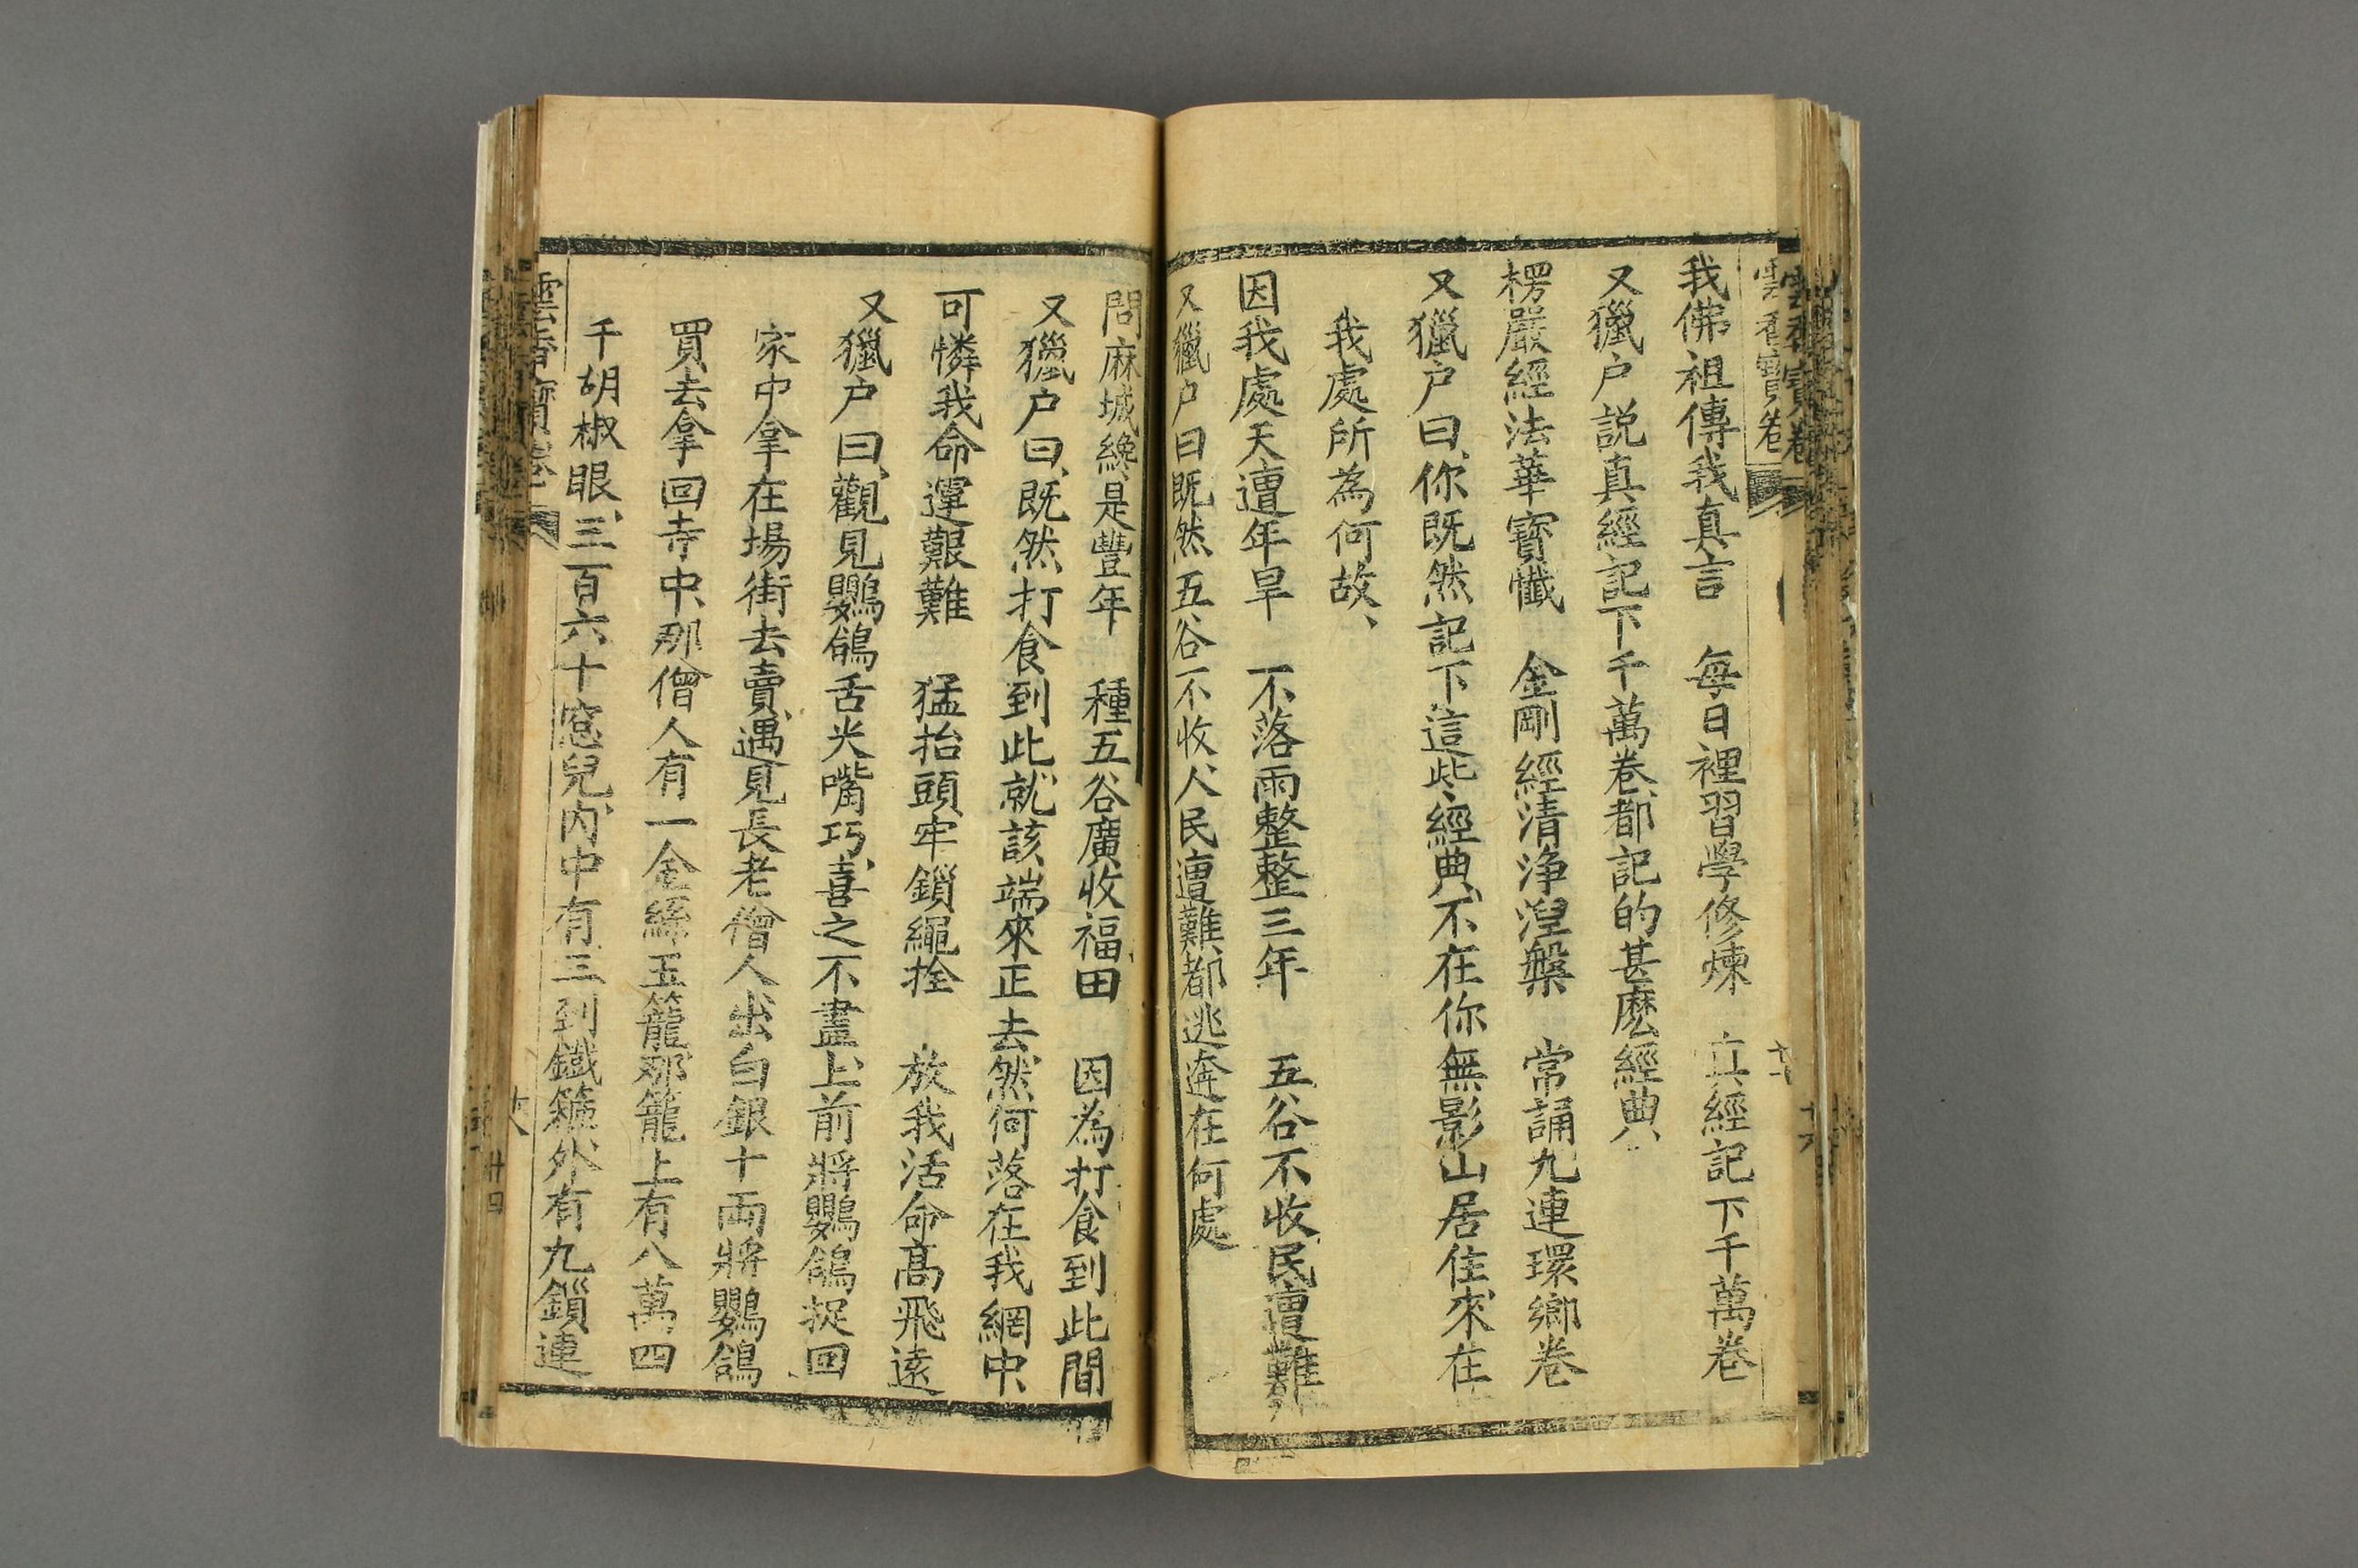 雲香寶卷
我佛祖傳我真言　每日裡習學修煉　真經記下千萬卷
又獵户説真經記下千萬卷、都記的甚麽經典、
楞嚴經法華寳懺　金剛經清净湼槃　常誦九連環鄉卷
又獵户曰、你既然記下這些經典、不在你無影山居住、來在
我處所為何故、
因我處天遭年旱　不落雨整整三年　五谷不收民遭難
又獵户曰既然五谷不收、人民遭難、都逃奔在何處
問麻城纔是豐年　種五谷廣收福田　因為打食到此間
又獵户曰、既然打食到此、就該端來正去、然何落在我網中、
可憐我命運艱難　猛抬頭牢鎖繩拴　放我活命高飛遠
又獵户曰、觀見鸚鴿舌尖嘴巧、喜之不盡、上前將鸚鴿捉回
家中拿在場街去賣、遇見長老僧人出白銀十両將鸚鴿
買去拿回寺中、那僧人有一金絲玉籠、那籠上有八萬四
千胡椒眼、三百六十窓兒、内中有三到鐵箍、外有九鎖連
雲香寶卷